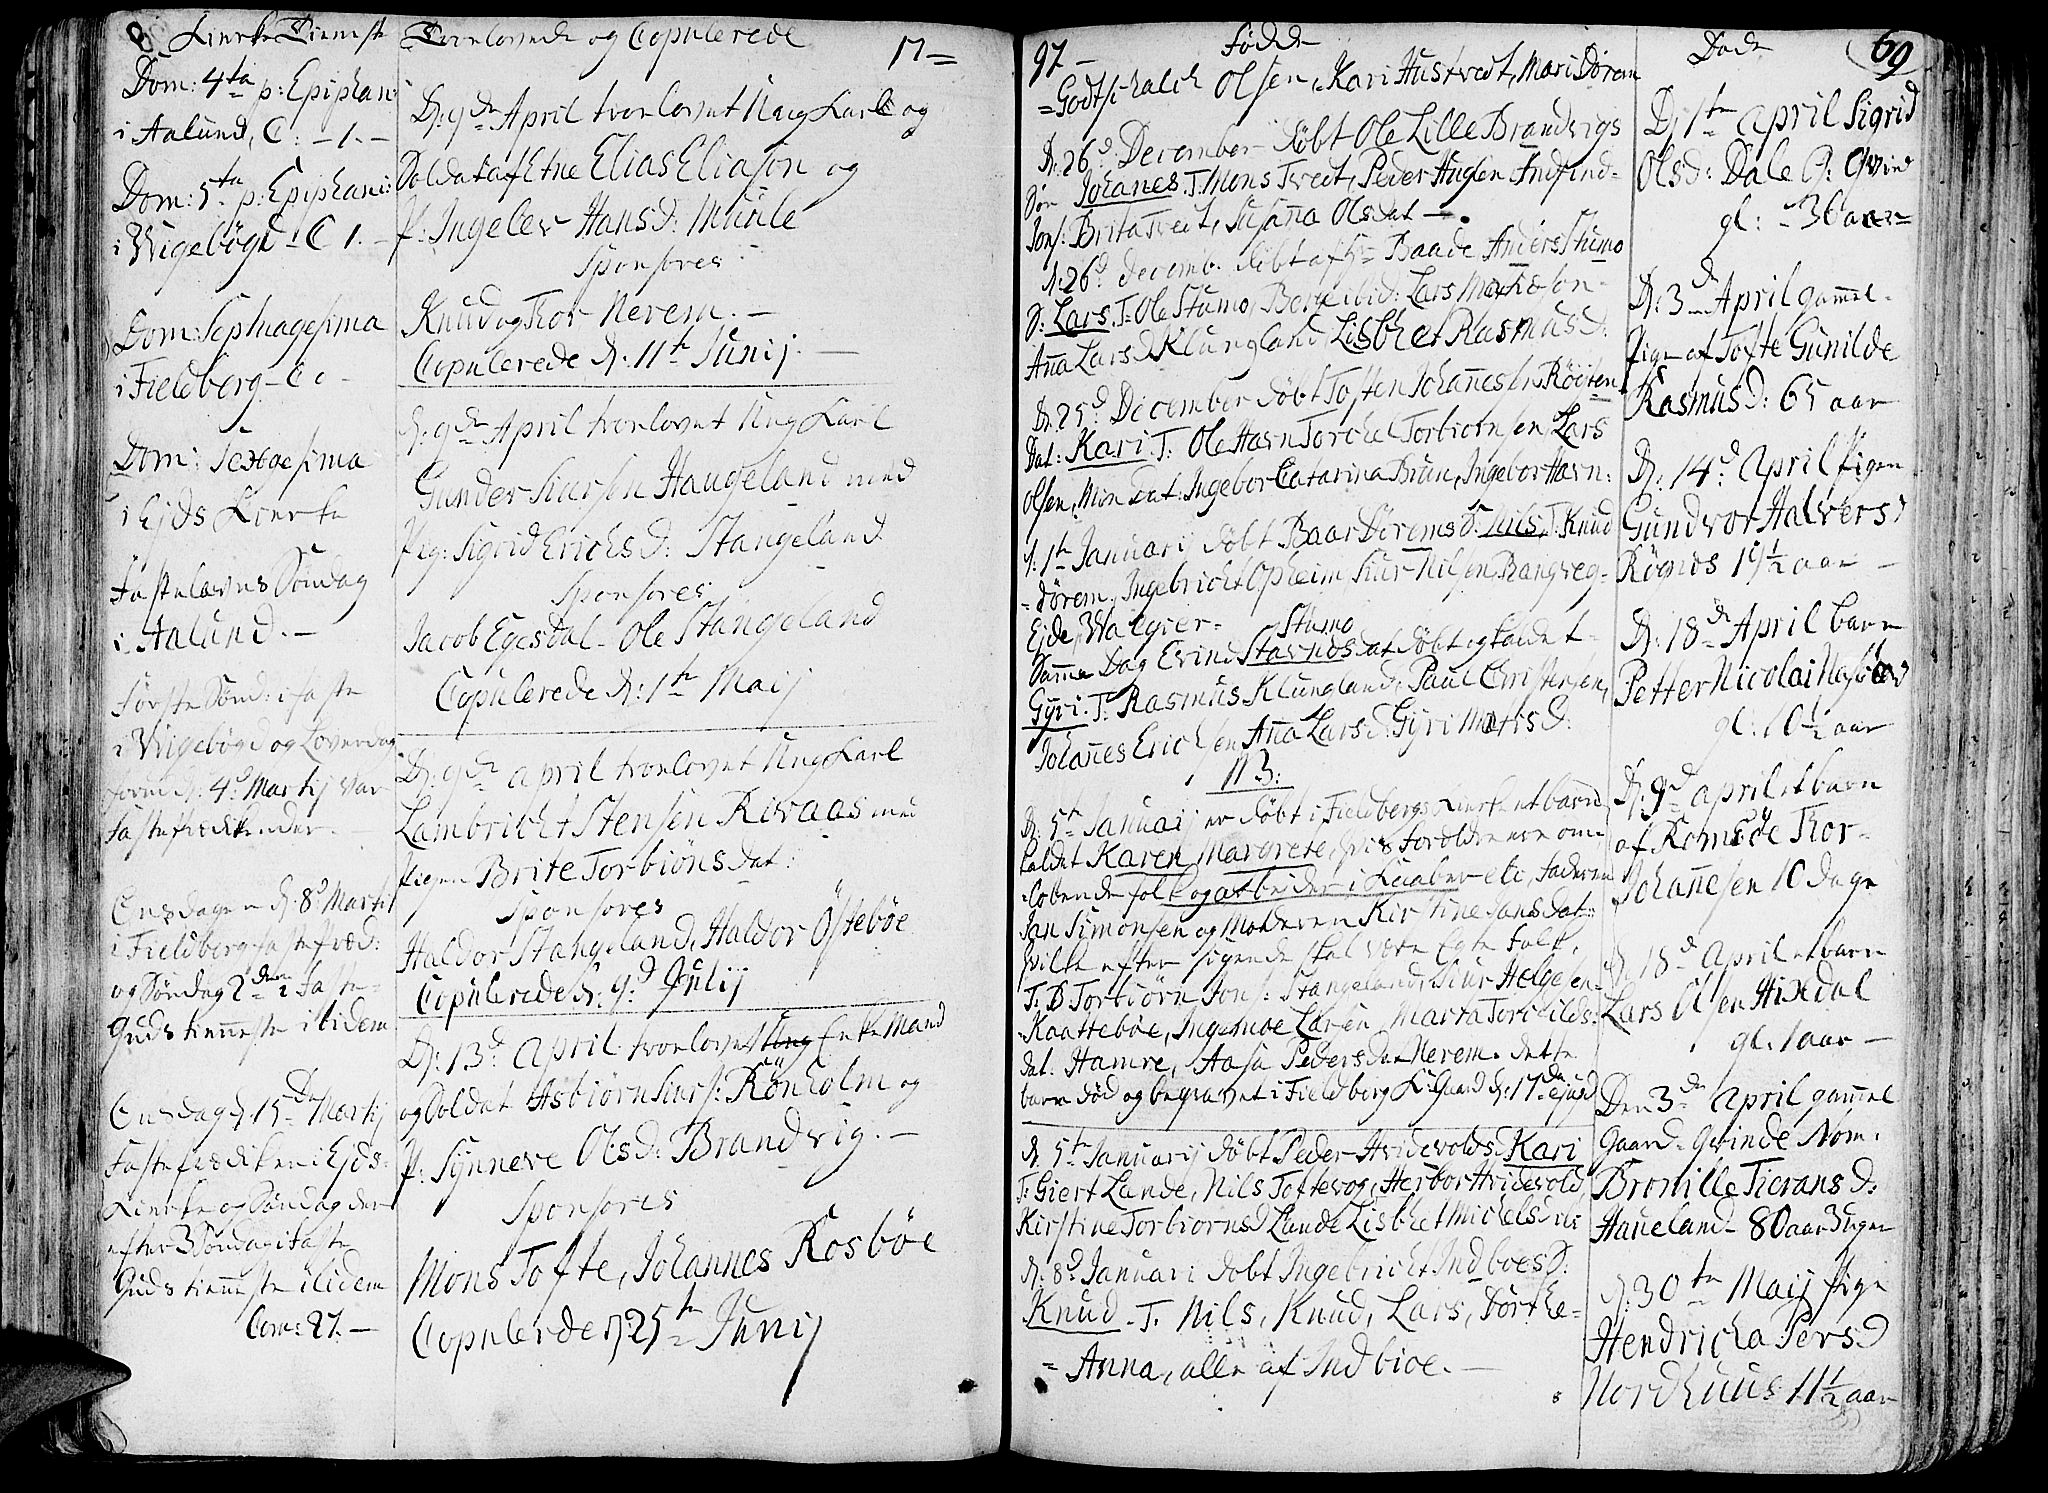 Kierke Tieneste
Dom: 4ta p: Epiphan:
i Aalund, C: - 1. -
Dom: 5ta p: Epiphani:
i Wigebögd - C 1. -
Dom: Septuagesima
i Fieldberg - C 0 -
Dom: Sexagesima
i Ejds Kierke
Fastelavns Söndag
i Aalund. -
Förste Sönd: i faste
i Wigebögd og Löverdag
forud d: 4d Martij var
Onsdagen d: 8d Martij
i Fieldberg faste præd:
og Söndag 2den i Faste
Guds tienneste itidem
Onsdag d: 15de Martij
Faste prædiken i Ejds
Kierke og Söndag der
efter 3 Söndag i Faste
Guds tienneste itidem
Com: 27. -
Trovlovede og Copulerede 17=
D: 9de April trovlovet Ung Karl og
Soldat af Etne Elias Eliason og
P: Ingelev Hans D: Münle
Sponsores
Knud og Thor Nerem. -
Copulerede d: 11te Junij. -
D: 9de April trovlovet Ung Karl
Gunder Siursen Haugeland med
Pig: Sigrid Erichs D: Stangeland
Sponsores
Jacob Egesdal - Ole Stangeland
Copulerede d: 1te Maij
D: 9de april trovlovet Ung Karl
Lambricht Stensen Rivaas med
Pigen Brite Torbiöns dat:
Sponsores
Haldor Stangeland, Haldor Östeböe
Copulerede d: 9d Julij
D: 13d April trovlovet Ung Enke Mand
og Soldat Asbiörn Siurs: Rönholm og
P: Synneve Ols D: Brandvig. -
Sponsores
Mons Tofte, Johannes Rosböe
Copulerede d: 25te Junij
97 - Födde
= Godtschalch Olsen, Kari Hustvedt, Mari Dörem
D: 26d December döbt Ole Lille Brandvigs
Sön Johanes. T. Mons Tvedt, Peder Hugen Andfind-
Jons: Brita Tvedt, Susana Olsdat -.
d: 26d decemb. döbt af Hr Baade Anders Stumo
S: Lars. T: Ole Stumo, Berge ibid: Lars
Ana Lars D Klungland Lisbhet Rasmus D:
D: 25d December döbt Tosten Johanesen Röiten
Dat: Kari T: Ole Havn Torchel Torbiornsen Lars
Olsen, Dat: Ingebor Catarina Brun, Ingebor Havn:
d: 1te Januarij döbt Baar Dörems S: Nils, T. Knud
= dörem, Ingebricht Opheim, Siur Nilsen, Rangveg-
Ejde, Walgier- Stumo
Samme Dag Evind Stavnos dat döbt og kaldet
Gyri. T: Rasmus Klungland, Paul Christensen,
Johanes Erichsen Ana Lars D: Gyri Matis D:
NB:
D: 5te Januarij er döbt i Fieldbergs Kierke et barn
kaldet Karen Margrete, hvis Foreldre ere om-
löbende folk og arbeider i Kaaber etc, Faderen
Jan Simonsen og Moderen Kirstine Jans dat:
hvilke efter sigende skal være Egte Folk,
T. B Torbiörn Jons: Stangeland, Siur Helgesen
Kaatteböe, Ingemoe Larsen Marta Torchilds:
dat: Hamre, Aasa Peders dat Nerem. dette
barn död og begravet i Fieldberg K: Gaard d: 17de ejusd
d: 5te Januarij döbt Peder Hvidevolds Kari
T: Giert Lande, Nils Toftevog, Herbor Hvidevold
Kirstine Torbiorns D Lande Lisbhet Michels D
d: 8d Januari döbt Ingebricht Indböes S:
Knud - T. Nils, Knud, Lars, Dorthe-
= Anna, alle af Indbioe. -
Döde 69
D: 1te April Sigrid
Olsd: Dale G: Qvind
gl: - 36 aar=
D: 3d April gamel
Pige af Tofte Gunilde
Rasmus D: 65 aar
D: 14d April Pigen
Gundvor Halvers D
Rögnos 19½ aar -
D: 18de April barn
Petter Nicolai
gl: 10½ aar
D: 9d april et barn
af Romsöe Thor
Johanesen 10 dage
D: 18d April et barn
Lars Olsen Hixdal
gl. 1 aar -
Den 3de April gamel
Gaard Qvinde Nom.
Bronille Tierans D:
Haueland - 80 aar 3 uger
d: 30te Maij Pige
Hendricha Pers D
Nordhuus 11½ aar